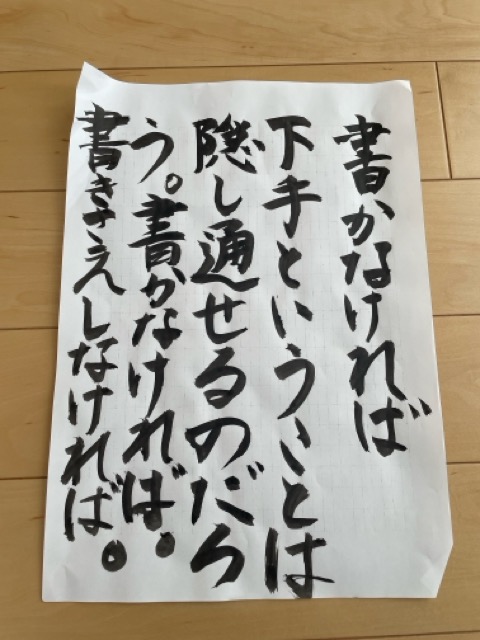 書かなければ
下手ということは
隠し通せるのだろ
う。書かなければ。
書きさえしなければ。